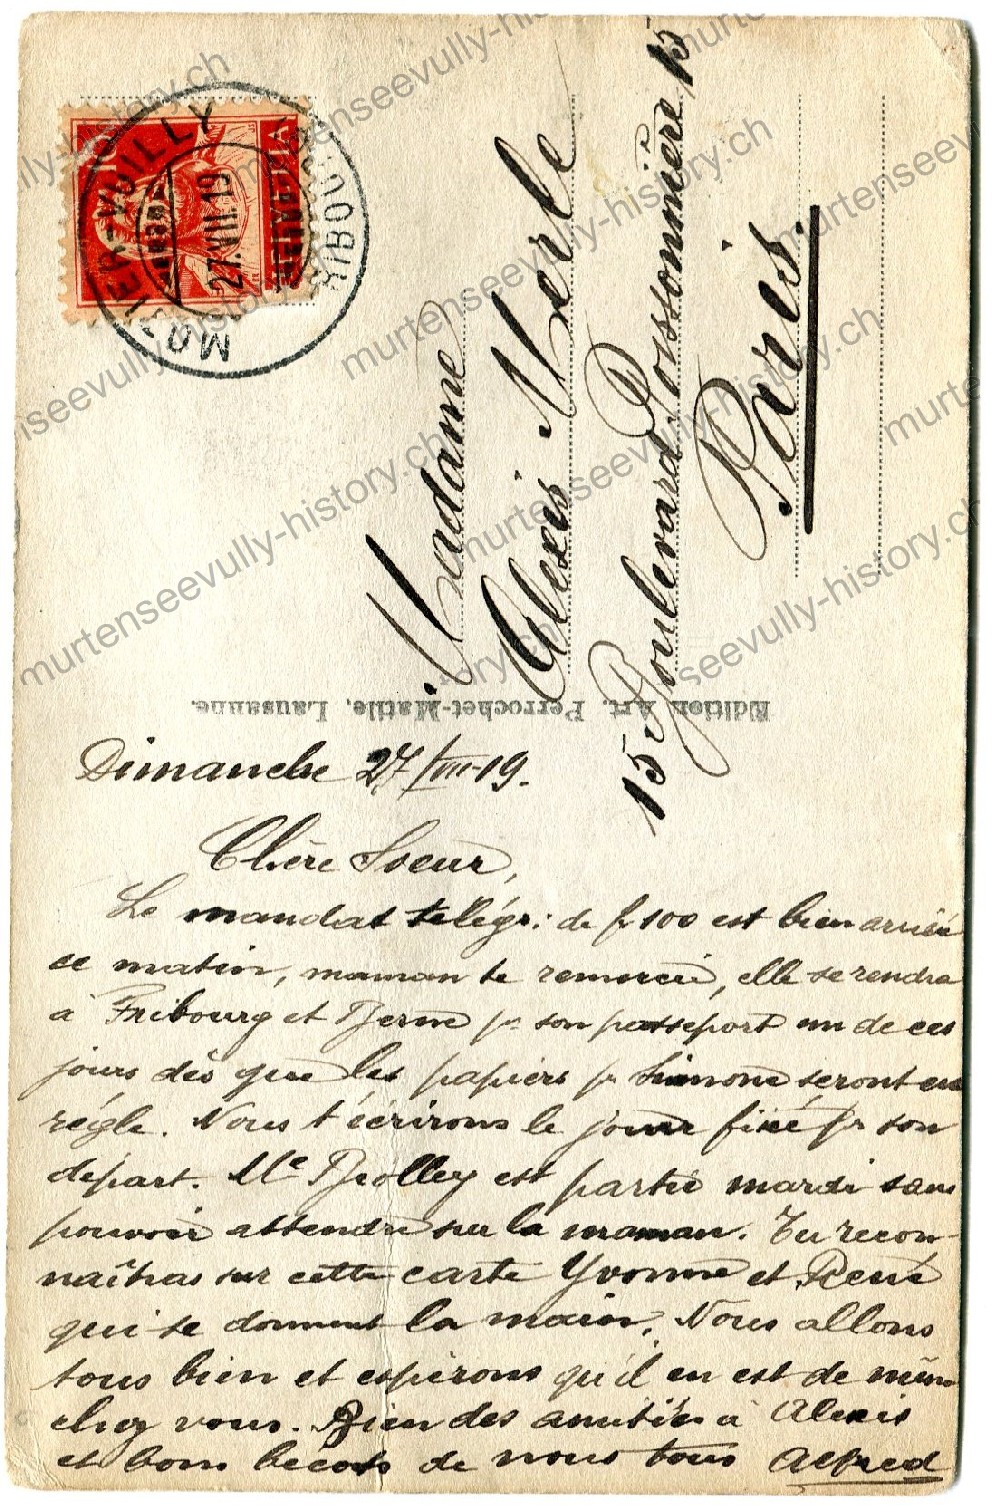 MOTIER-VULLY
27.VII.19
(FRIBOURG)
HELVETIA
Madame
Alexis Merle
15 Boulevard Poissonnière 15
Paris.
Edition Art. Perrochet-Matile, Lausanne.
Dimanche 27/VII-19.
Chère Soeur,
Le mandat télégr: de fr 100 est bien arrivé
ce matin, maman te remercie, elle se rendra
à Fribourg et Berne pr son passeport un de ces
jours dès que les papiers pr Simone seront en
règle. Nous t'écrirons le jour fixé pr son
départ. Me Biolley est partie mardi sans
pouvoir attendre sur la maman. Tu recon-
naîtras sur cette carte Yvonne et René
qui se donnent la main. Nous allons
tous bien et espérons qu'il en est de même
chez vous. Bien des amitiés à Alexis
et bons becots de nous tous Alfred
murtenseevully-history.ch